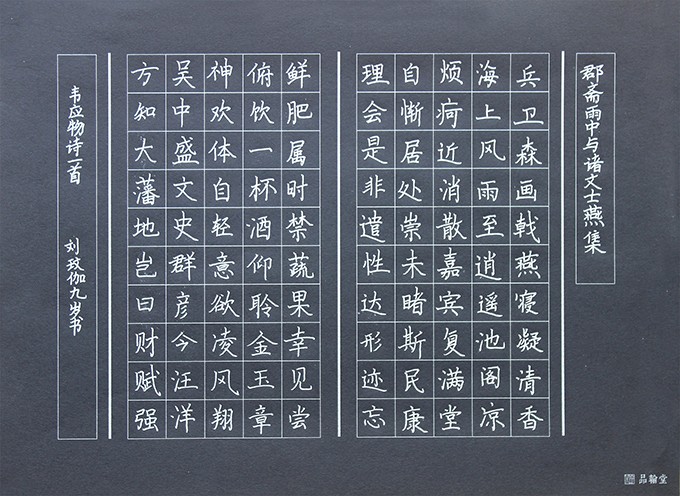 郡斋雨中与诸文士燕集
兵卫森画戟燕寝凝清香
海上风雨至逍遥池阁凉
烦疴近消散嘉宾复满堂
自惭居处崇未睹斯民康
理会是非遣性达形迹忘
鲜肥属时禁蔬果幸见尝
俯饮一杯酒仰聆金玉章
神欢体自轻意欲凌风翔
吴中盛文史群彦今汪洋
方知大藩地岂曰财赋强
韦应物诗一首 刘玟伽九岁书
品翰堂